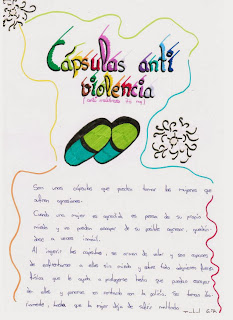 Cápsulas anti
violencia
Son unas cápsulas que pueden tomar las mujeres que
sufren agresiones.
Cuando una mujer es agredida es presa de su propio
miedo y no pueden escapar de su posible agresor, quedán-
dose a veces inmóvil.
Al ingerir las cápsulas, se arman de valor y son capaces
de enfrentarse a ellos sin miedo y sobre todo adquieren fuerza
física que le ayuda a protegerse hasta que puedan escapar
de ellos y ponerse en contacto con la policía. Se toman
hasta que la mujer deja de sufrir maltrato